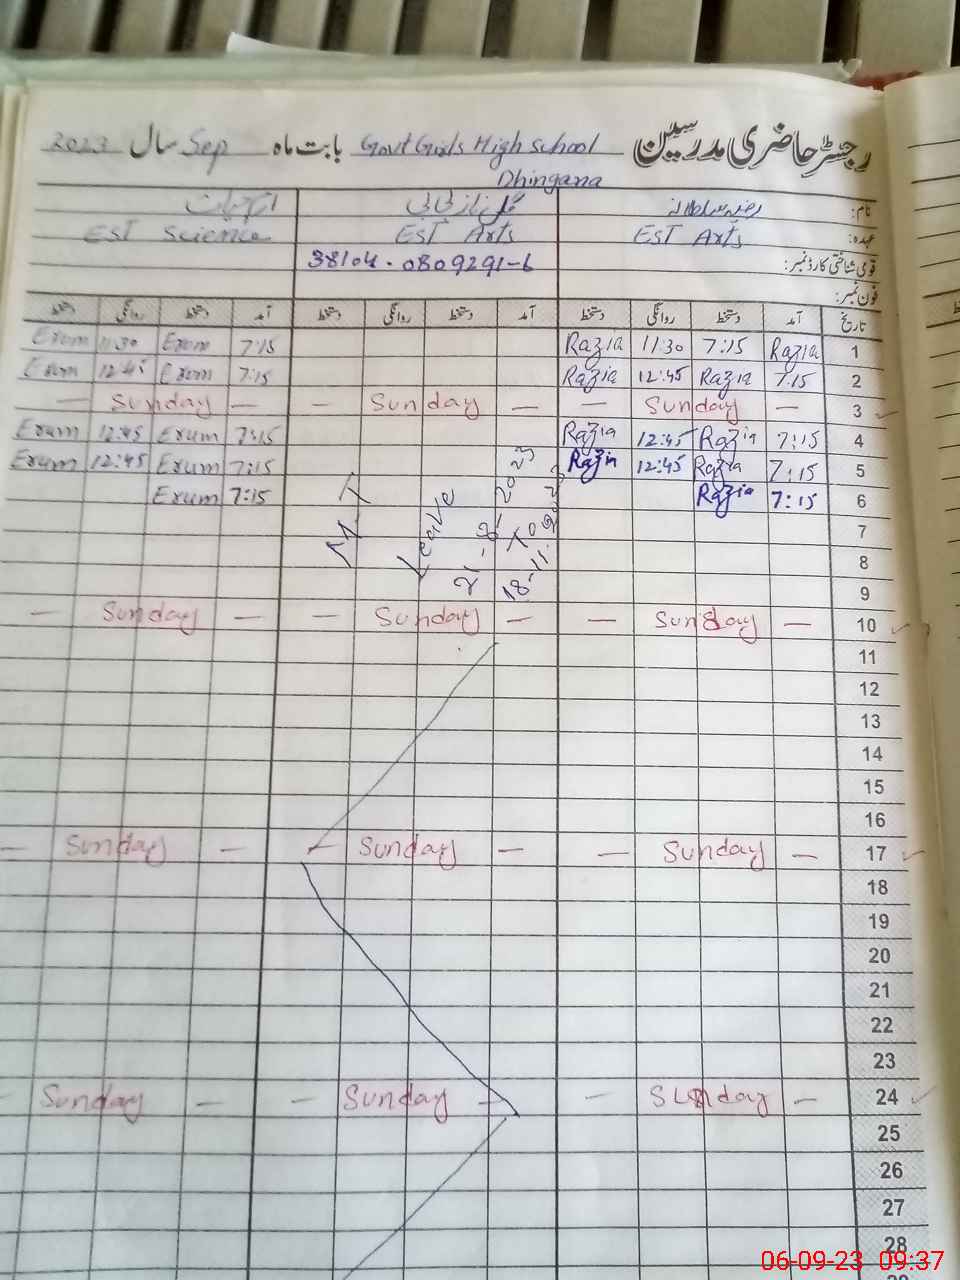 رجسٹر حاضری مدرسین Govt Girls High School بابت ماہ Sep سال 2023
Dhingana
نام: رضیہ سلطانہ گل ناز بی بی
عہدہ: EST Arts EST Arts EST Science
قومی شناختی کارڈ نمبر: 38104-0809291-6
فون نمبر:
تاریخ آمد دستخط روانگی دستخط آمد دستخط روانگی دستخط آمد دستخط روانگی دستخط
1 Razia 7:15 11:30 Razia 7:15 Erum 11:30 Erum
2 7:15 Razia 12:45 Razia 7:15 Erum 12:45 Erum
3 — Sunday — — Sunday — — Sunday —
4 7:15 Razia 12:45 Razia 7:15 Erum 12:45 Erum
5 7:15 Razia 12:45 Razia 7:15 Erum 12:45 Erum
6 7:15 Razia 7:15 Erum
M.T
Leave
21-8-2023
To
18-11-
7
8
9
10 — Sunday — — Sunday — — Sunday —
11
12
13
14
15
16
17 — Sunday — — Sunday — — Sunday —
18
19
20
21
22
23
24 — Sunday — — Sunday — — Sunday —
25
26
27
28
06-09-23 09:37